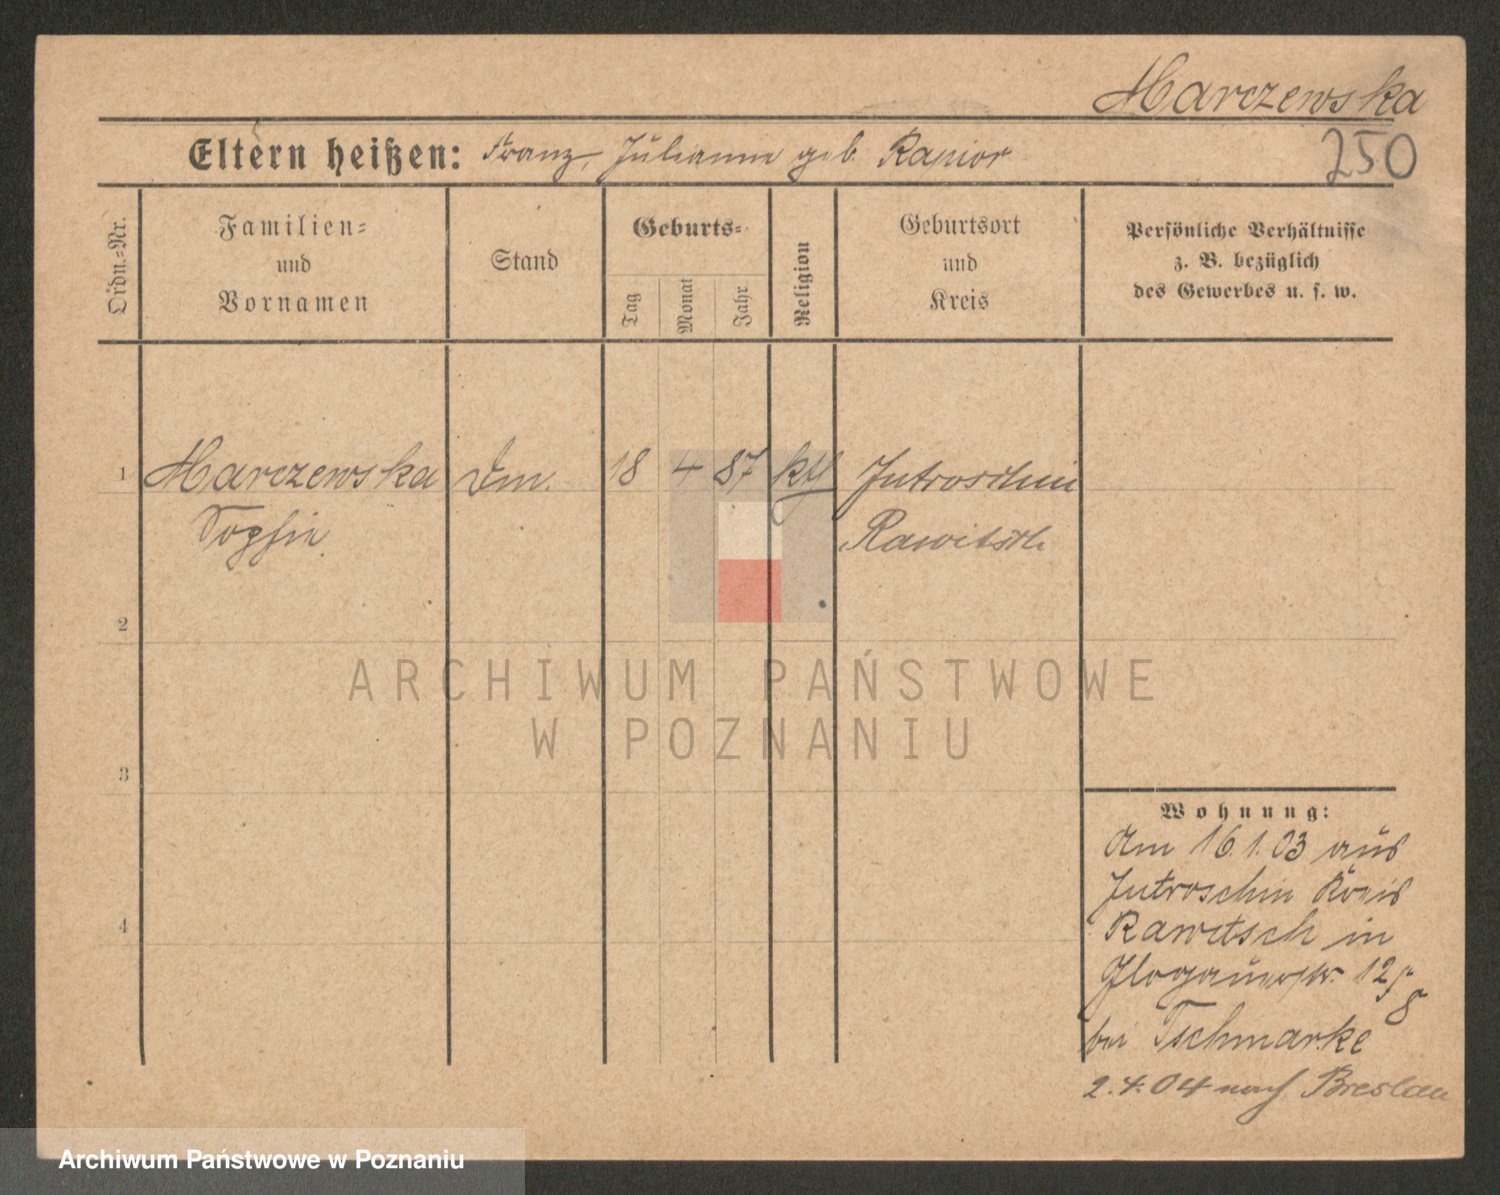 Marczewska
Eltern heißen: Franz, Julianna geb. Rapior
250
Ordn.=Nr.
Familien=
und
Vornamen
Stand
Geburts=
Tag
Monat
Jahr
Religion
Geburtsort
und
Kreis
Persönliche Verhältnisse
z. B. bezüglich
des Gewerbes u. s. w.
1 Marczewska 18 4 87 kth Jutroschin
Sophie Rawitsch
2
ARCHIWUM PAŃSTWOWE
W POZNANIU
3
4
Wohnung:
Am 16.1.03 aus
Jutroschin Kreis
Rawitsch in
Glogauerstr. 12
8
bei Tschmarke
2.4.04 nach Breslau
Archiwum Państwowe w Poznaniu